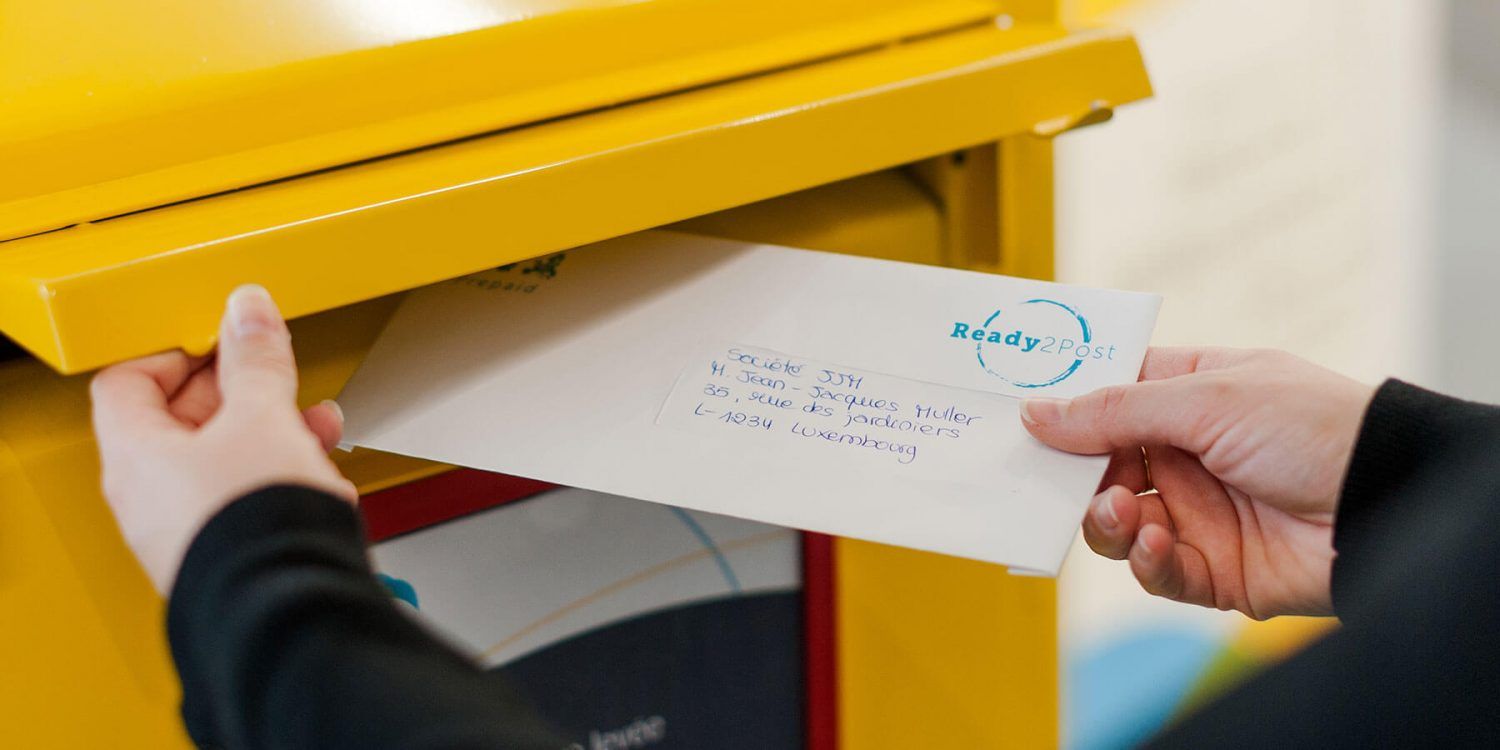 Prepaid
Ready2Post
Société JJM
M. Jean-Jacques Muller
35, rue des jardiniers
L-1234 Luxembourg
levée